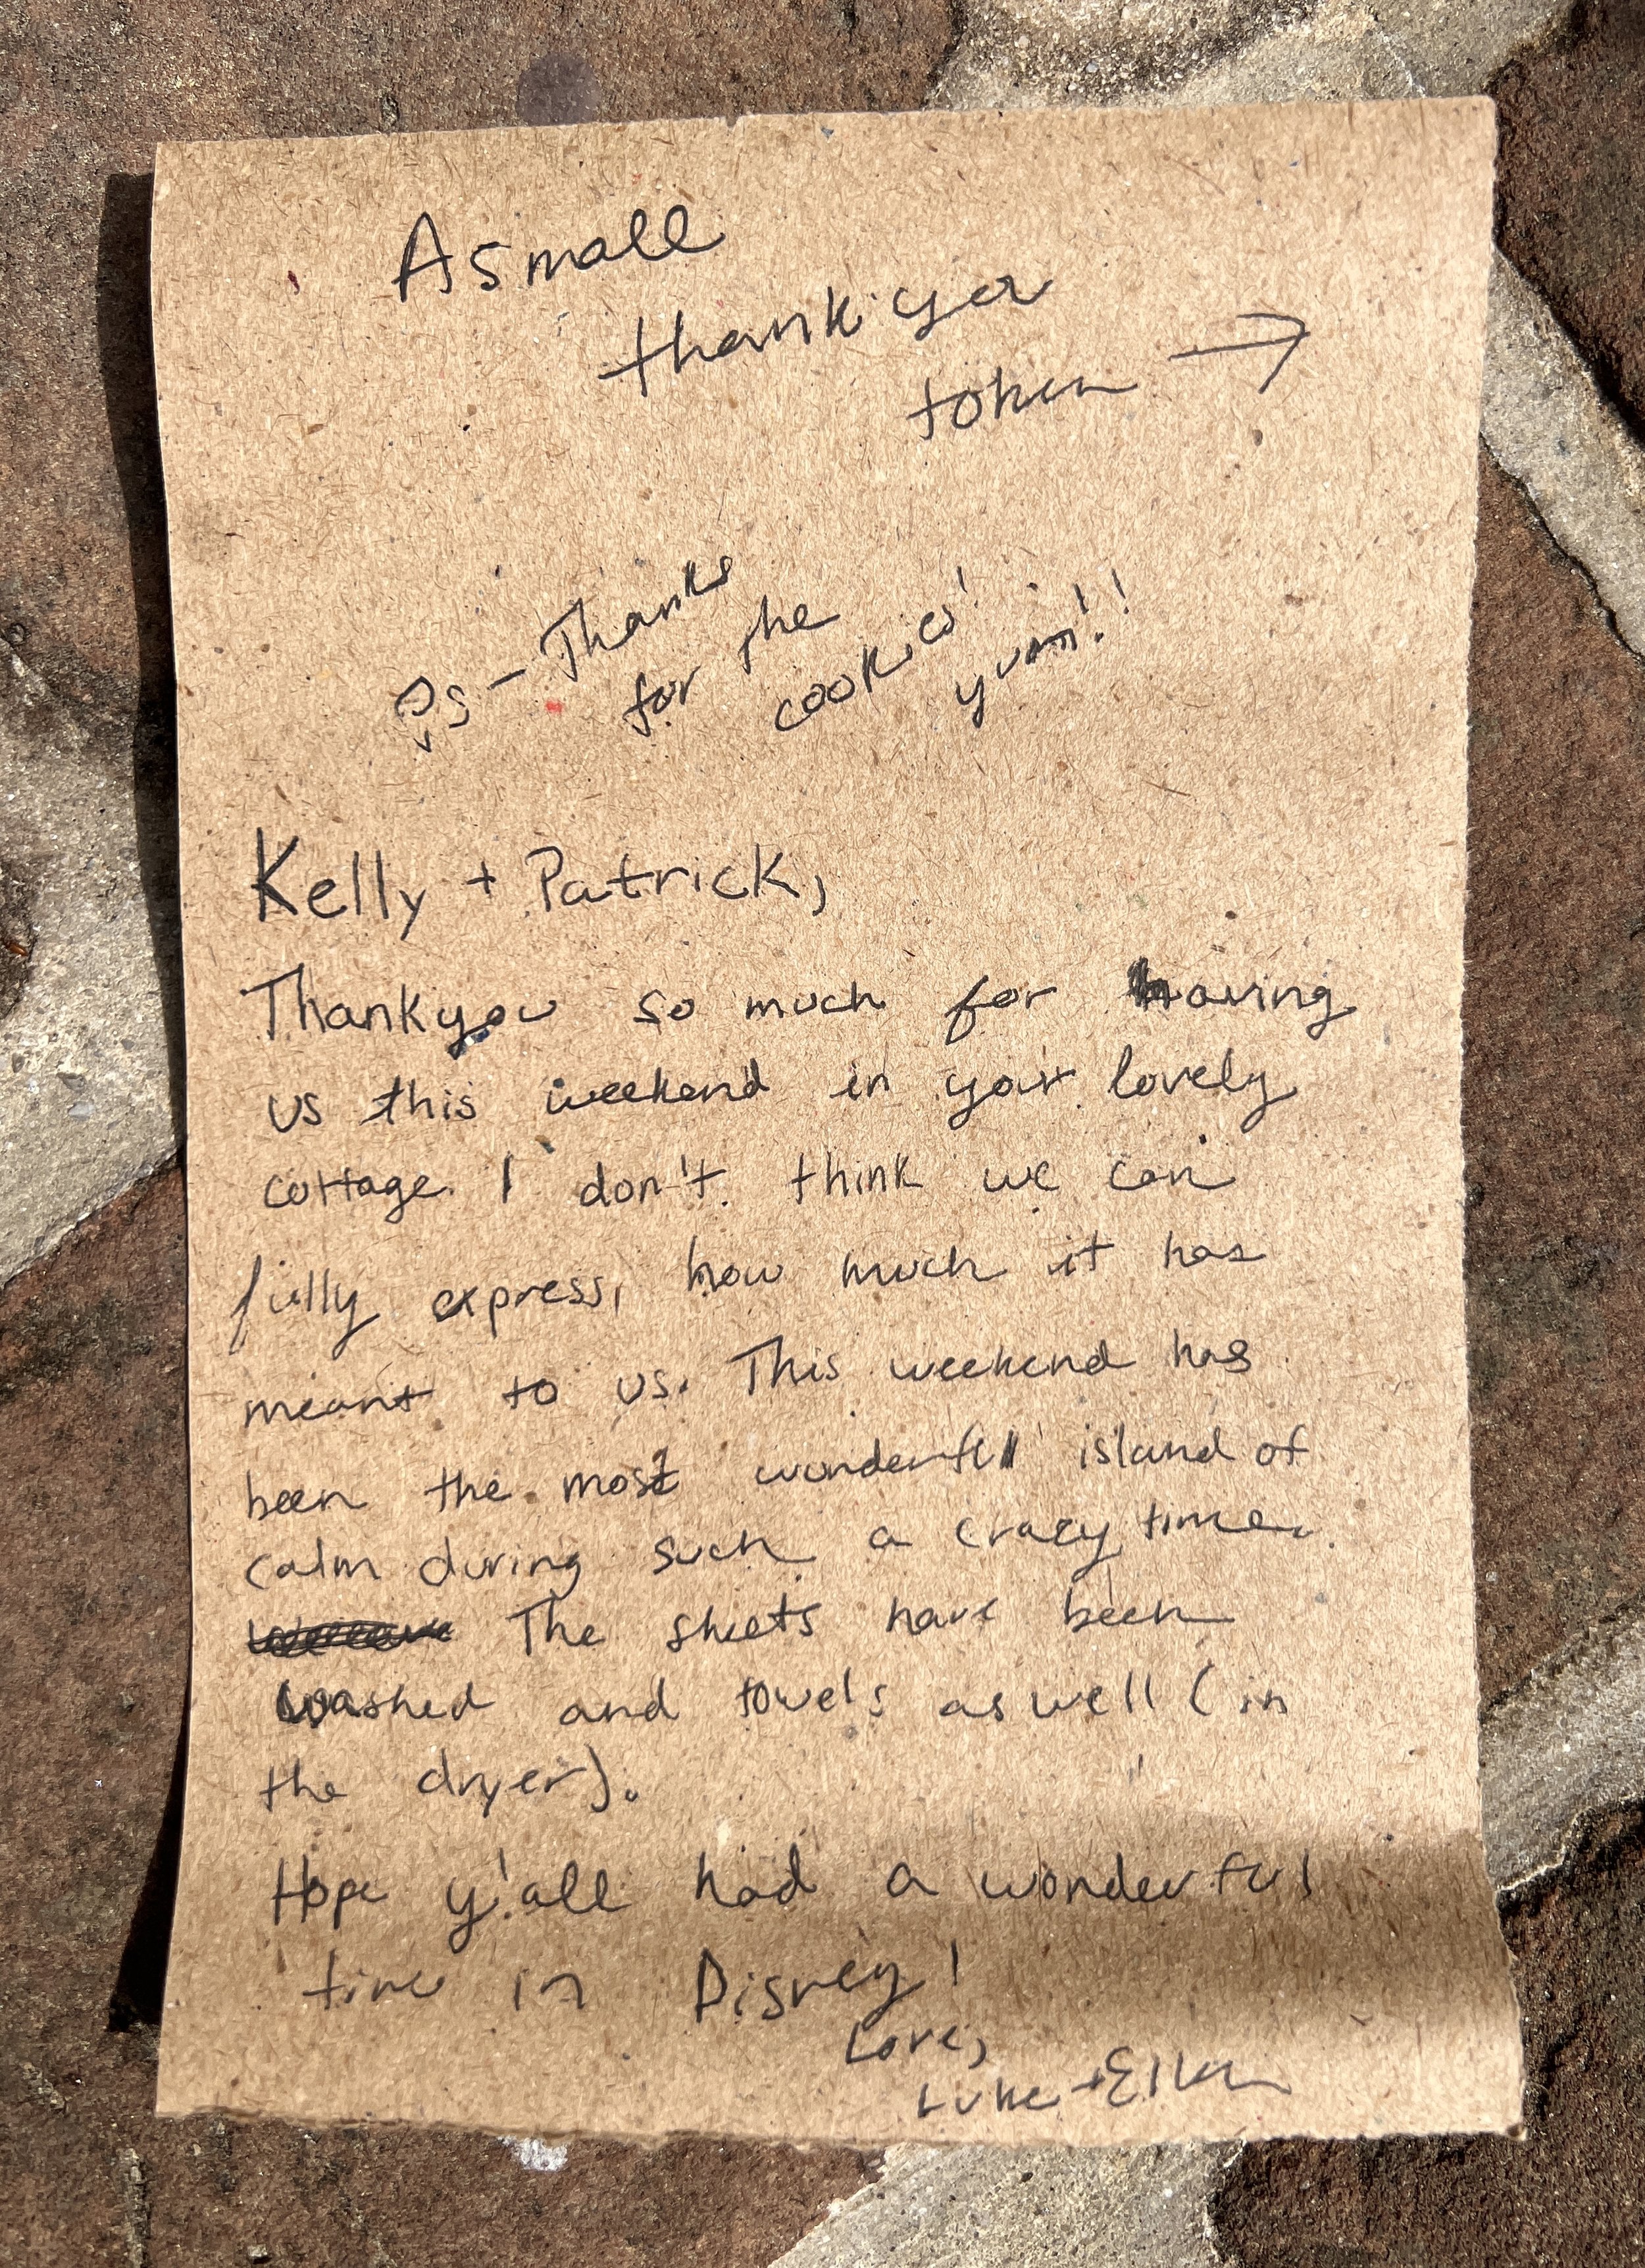 A small
thank you
token →
Ps - Thanks
for the
cookies!
yum!!
Kelly + Patrick,
Thankyou so much for having
us this weekend in your lovely
cottage. I don't think we can
fully express, how much it has
meant to us. This weekend has
been the most wonderful island of
calm during such a crazy time.
The sheets have been
washed and towels as well (in
the dryer).
Hope y'all had a wonderful
time in Disney!
Love,
Luke +